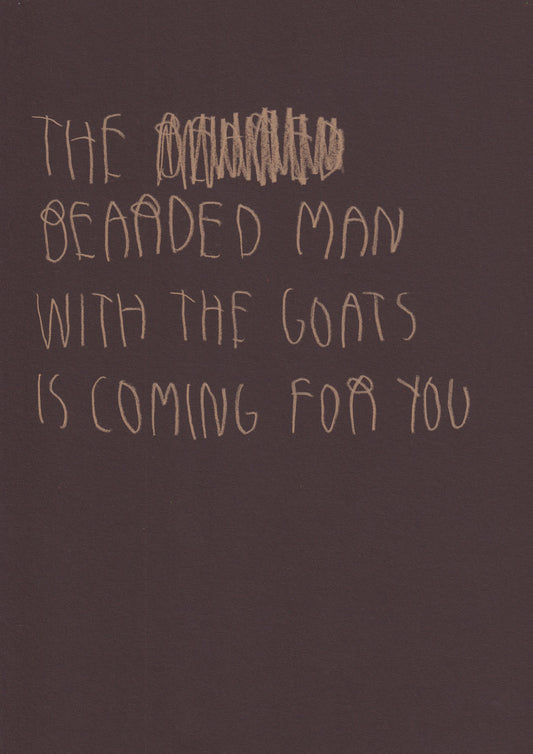 THE
BEARDED MAN
WITH THE GOATS
IS COMING FOR YOU